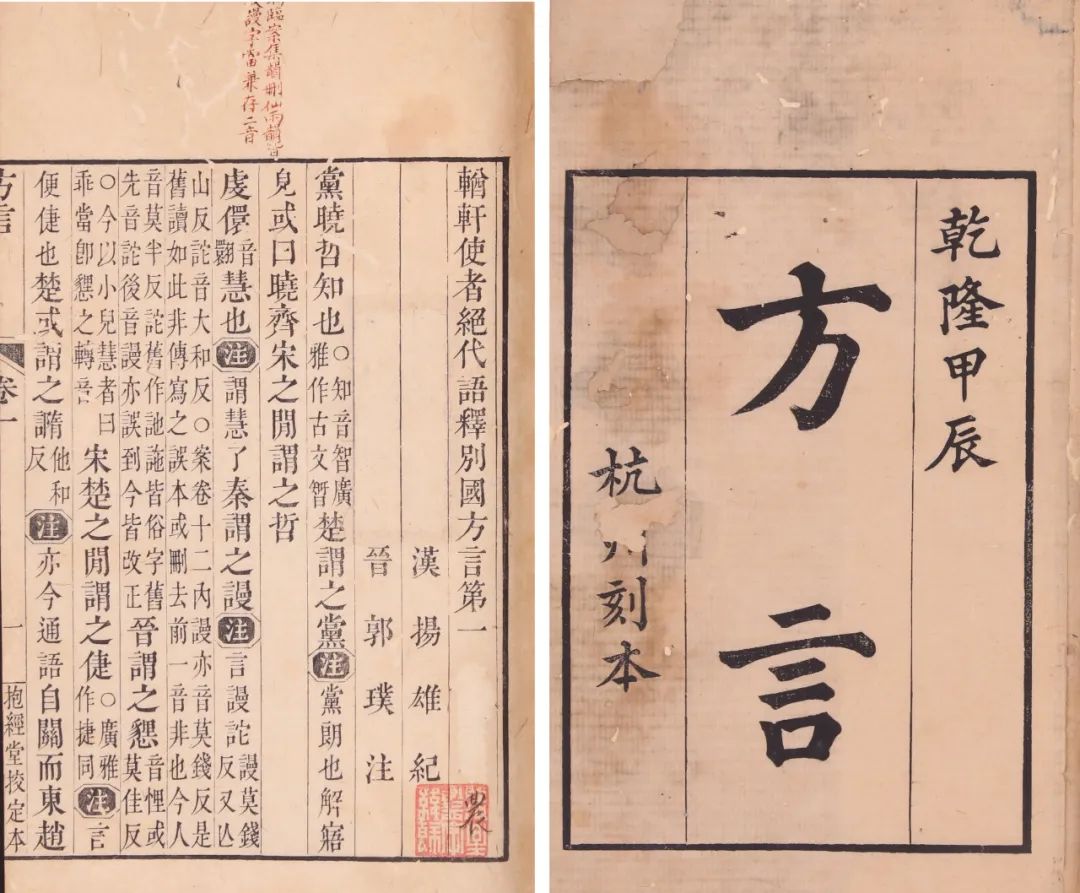 乾隆甲辰
方言
杭州刻本
臨案集韻刪仙兩韻皆
謾字當兼存二音
輶軒使者絕代語釋別國方言第一
漢揚雄紀
晉郭璞注
黨曉哲知也○知音智廣雅作古文 楚謂之黨注黨朗也解寤
皃或曰曉齊宋之閒謂之哲
虔儇音翾慧也注謂慧了秦謂之謾注言謾詑謾莫錢反又亾
山反詑音大和反○案卷十二內謾亦音莫錢反是
舊讀如此非傳寫之誤本或刪去前一音非也今人
音莫半反詑舊作訑皆俗字舊
先音詑後音謾亦誤到今皆改正晉謂之㦟音悝或莫佳反
○今以小兒慧者曰
乖當卽㦟之轉音宋楚之閒謂之倢○廣雅作捷同注言
便倢也楚或謂之䜏他和反注亦今通語自關而東趙
方言 卷一 一 抱經堂挍定本